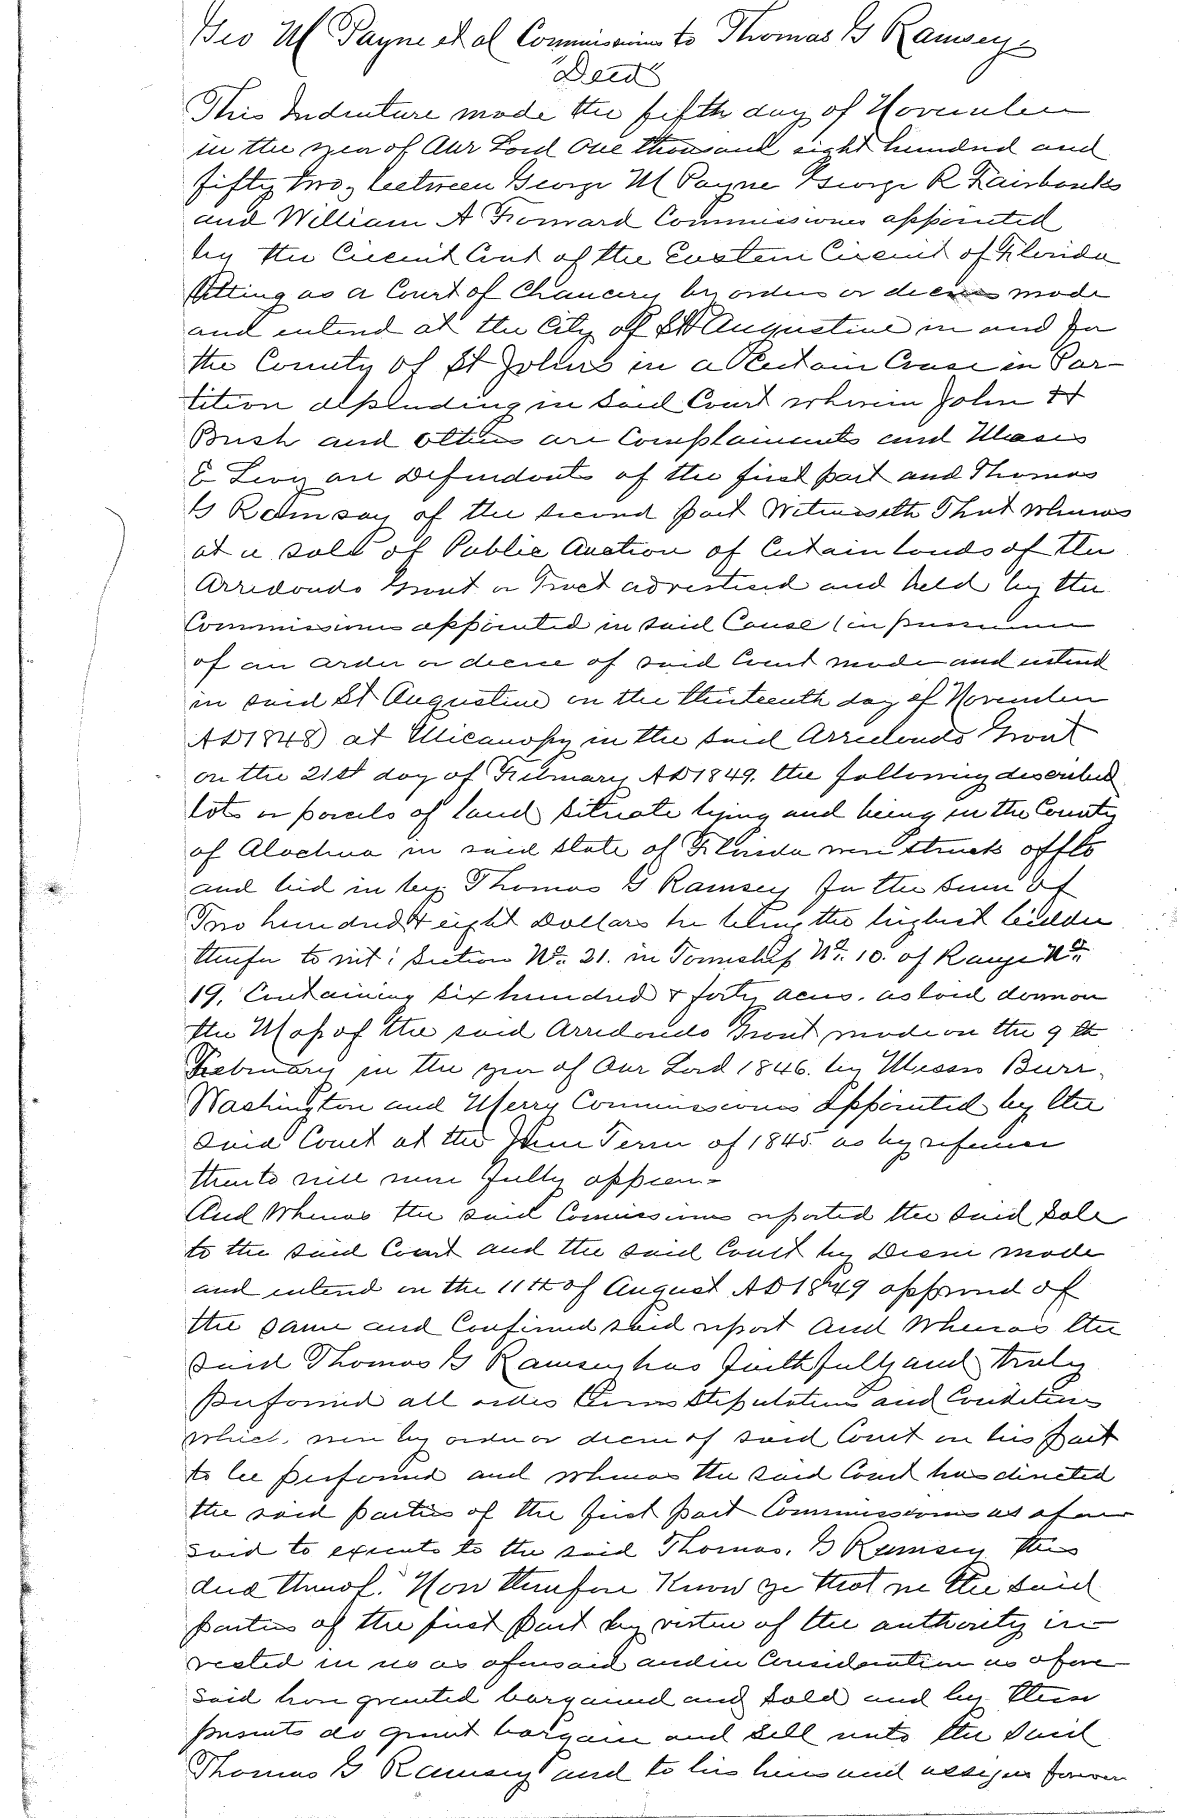 Geo M Payne et al Commissioners to Thomas G Ramsey
"Deed"
This Indenture made the fifth day of November
in the year of Our Lord One thousand eight hundred and
fifty two, between George M Payne George R Fairbanks
and William A Forward Commissioners appointed
by the Circuit Court of the Eastern Circuit of Florida
Sitting as a Court of Chancery by orders or decrees made
and entered at the City of St Augustine in and for
the County of St Johns in a Certain Cause in Par-
tition depending in Said Court wherein John H
Bush and others are Complainants and Moses
E Levy are Defendants of the first part and Thomas
G Ramsay of the second part Witnesseth That whereas
at a sale of Public Auction of Certain lands of the
Arredondo Grant or Tract advertised and held by the
Commissioners appointed in said Cause (in pursuance
of an order or decree of said Court made and entered
in said St Augustine on the thirteenth day of November
AD 1848) at Micanopy in the said Arredondo Grant
on the 21st day of February AD 1849. the following described
lots or parcels of land situate lying and being in the County
of Alachua in said State of Florida were struck off to
and bid in by Thomas G Ramsey for the sum of
Two hundred & eight Dollars he being the highest bidder
therefor to wit: Section No. 21. in Township No. 10. of Range No.
19, Containing six hundred & forty acres. as laid down on
the Map of the said Arredondo Grant made on the 9th
February in the year of Our Lord 1846. by Messrs Burr,
Washington and Merry Commissioners appointed by the
said Court at the June Term of 1845 as by reference
thereto will more fully appear-
And Whereas the said Comissioners reported the said Sale
to the said Court and the said Court by Decree made
and entered on the 11th of August AD 1849 approved of
the same and Confirmed said report And Whereas the
said Thomas G Ramsey has faithfully and truly
performed all orders terms stipulations and Conditions
which were by order or decree of said Court on his part
to be performed and whereas the said Court has directed
the said parties of the first part Commissioners as afore
said to execute to the said Thomas. G Ramsey this
deed thereof. Now therefore Know ye that we the said
parties of the first part by virtue of the authority in-
vested in us as aforesaid and in Consideration as afore-
said have granted bargained and sold and by these
presents do grant bargain and sell unto the said
Thomas G Ramsey and to his heirs and assigns forever